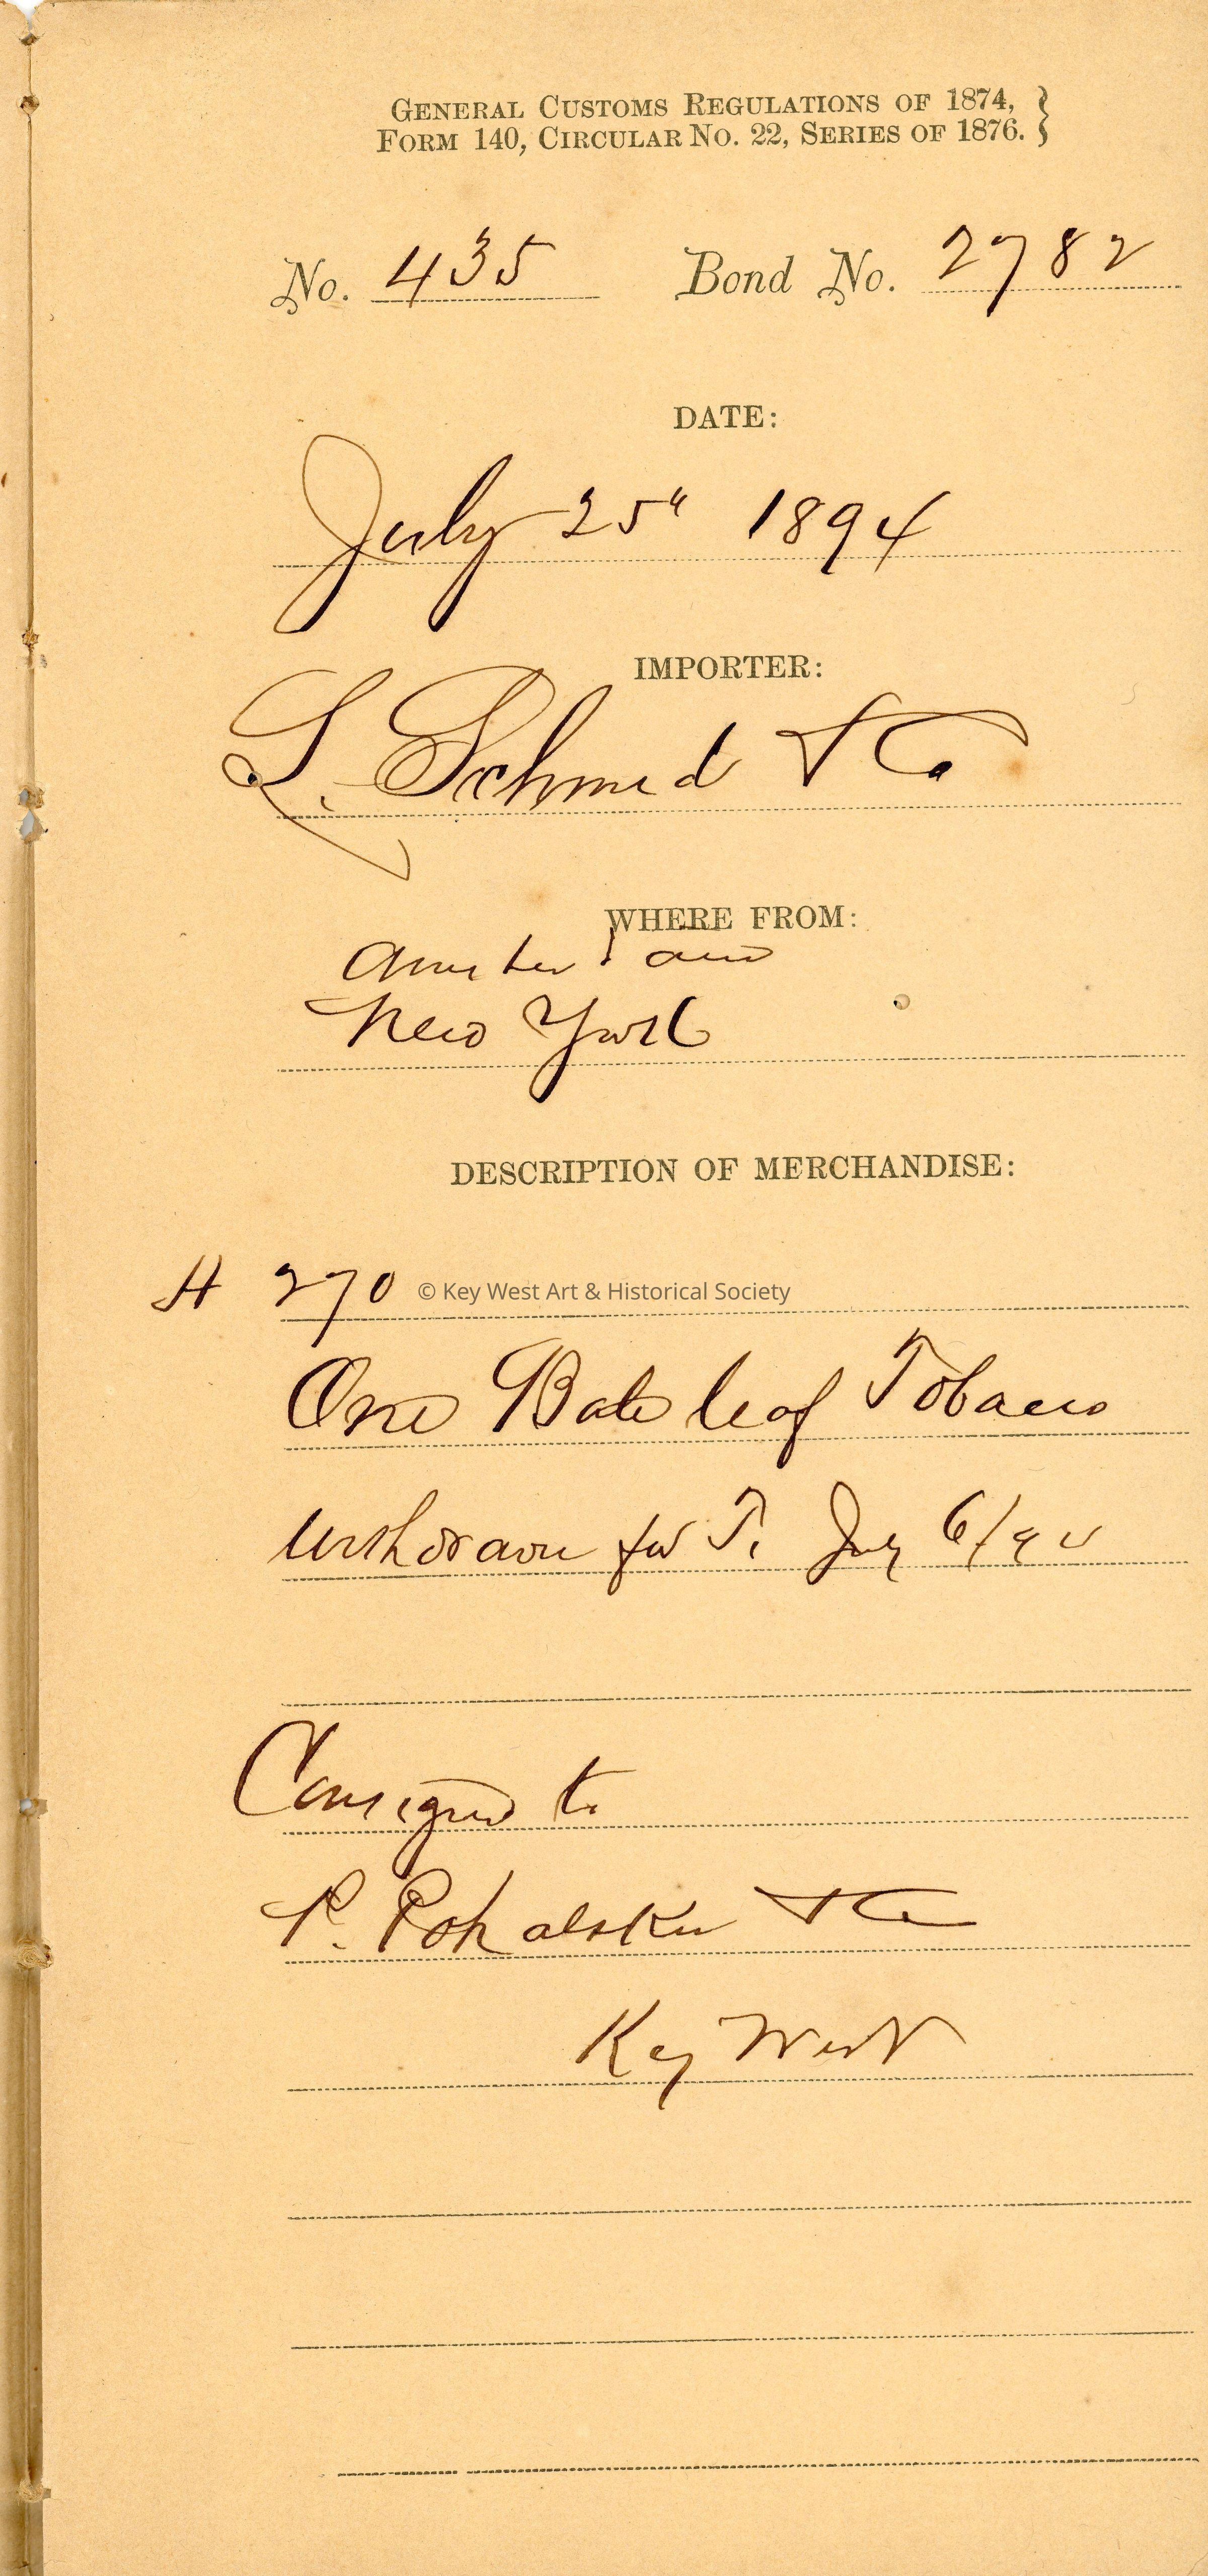 GENERAL CUSTOMS REGULATIONS OF 1874,
FORM 140, CIRCULAR NO. 22, SERIES OF 1876.
No. 435 Bond No. 2782
DATE:
July 25" 1894
IMPORTER:
L. Schmid & Co
WHERE FROM:
Amsterdam
New York
DESCRIPTION OF MERCHANDISE:
H 270
© Key West Art & Historical Society
One Bale leaf Tobacco
Withdrawn for T. July 6/94
Consigned to
P. Pohalski & Co
Key West